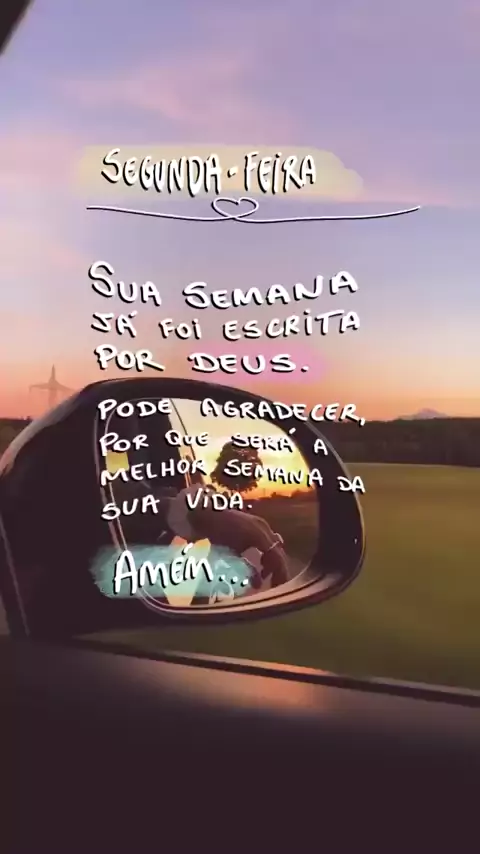 SEGUNDA-FEIRA
SUA SEMANA
JÁ FOI ESCRITA
POR DEUS.
PODE AGRADECER,
POR QUE SERÁ A
MELHOR SEMANA DA
SUA VIDA.
AMÉM...